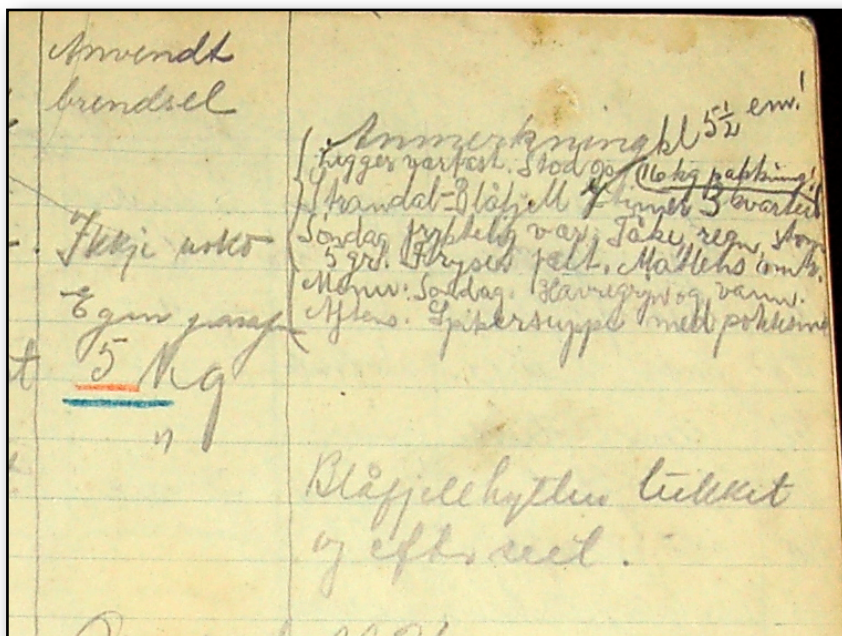 Anvendt
brendsel
Anmerkning kl 5½ em!
Ligger værfast. Stod op 16 kg pakning!
Strandal-Blåfjell 4 timer 3 kvarter
Søndag fryktelig vær, Tåke, regn, storm
5 gr. Fryser fælt.
Menu: Søndag. Havregryn og vann.
Aftens. Spikersuppe med
Ikkje noko
Egen
5 kg
"
Blåfjellhytten lukket
og efterseet.